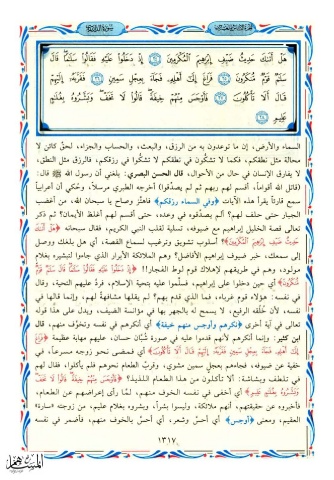 هَلْ أَتَىٰكَ حَدِيثُ ضَيْفِ إِبْرَٰهِيمَ ٱلْمُكْرَمِينَ ﴿٢٤﴾ إِذْ دَخَلُوا۟ عَلَيْهِ فَقَالُوا۟ سَلَٰمًا ۖ قَالَ
سَلَٰمٌ قَوْمٌ مُّنكَرُونَ ﴿٢٥﴾ فَرَاغَ إِلَىٰٓ أَهْلِهِۦ فَجَآءَ بِعِجْلٍ سَمِينٍ ﴿٢٦﴾ فَقَرَّبَهُۥٓ إِلَيْهِمْ
قَالَ أَلَا تَأْكُلُونَ ﴿٢٧﴾ فَأَوْجَسَ مِنْهُمْ خِيفَةً ۖ قَالُوا۟ لَا تَخَفْ ۖ وَبَشَّرُوهُ بِغُلَٰمٍ
عَلِيمٍ ﴿٢٨﴾
السماء والأرض، إن ما توعدون به من الرزق، والبعث، والحساب والجزاء، لحقٌّ كائن لا
محالة مثل نطقكم، فكما لا تشكّون في نطقكم لا تشكّوا في رزقكم، فالرزق مثل النطق،
لا يفارق الإنسان في حال من الأحوال، قال الحسن البصري: بلغني أن رسول الله ﷺ قال:
(قاتل الله أقواماً، أقسم لهم ربهم ثم لم يصدّقوا) أخرجه الطبري مرسلاً، وحُكي أن أعرابياً
سمع قارئاً يقرأ هذه الآيات ﴿وفي السماء رزقكم﴾ فاهتزَّ وصاح يا سبحان الله، من أغضب
الجبار حتى حلف لهم؟ ألم يصدقوه في وعده، حتى أقسم لهم أغلظ الأيمان؟ ثم ذكر
تعالى قصة الخليل إبراهيم مع ضيوفه، تسلية لقلب النبي الكريم، فقال سبحانه ﴿هَلْ أَتَىٰكَ
حَدِيثُ ضَيْفِ إِبْرَٰهِيمَ ٱلْمُكْرَمِينَ﴾؟ أسلوب تشويق وترغيب لسماع القصة، أي هل بلغك ووصل
إلى سمعك، خبر ضيوف إبراهيم الأفاضل؟ وهم الملائكة الأبرار الذي جاءوا لتبشيره بغلام
مولود، وهم في طريقهم لإهلاك قوم لوط الفجار!! ﴿إِذْ دَخَلُوا۟ عَلَيْهِ فَقَالُوا۟ سَلَٰمًا قَالَ سَلَٰمٌ قَوْمٌ
مُّنكَرُونَ﴾ أي حين دخلوا على إبراهيم، فسلَّموا عليه بتحية الإسلام، فردَّ عليهم التحية، وقال
في نفسه: هؤلاء قوم غرباء، فما الذي قدم بهم؟ لم يقلها مشافهة لهم، وإنما قالها في
نفسه، لأن خُلُقه الرفيع، لا يسمح له بالجهر بها في مؤانسة الضيف، ويدل على هذا قوله
تعالى في آية أخرى ﴿نكرهم وأوجس منهم خيفة﴾ أي أنكرهم في نفسه وتخوَّف منهم، قال
ابن كثير: وإنما أنكرهم لأنهم قدموا عليه في صورة شُبَّان حسان، عليهم مهابة عظيمة ﴿فَرَاغَ
إِلَىٰٓ أَهْلِهِۦ فَجَآءَ بِعِجْلٍ سَمِينٍ فَقَرَّبَهُۥٓ إِلَيْهِمْ قَالَ أَلَا تَأْكُلُونَ﴾ أي فمضى نحو زوجه مسرعاً، في
خفية عن ضيوفه، فجاءهم بعجل سمين مشوي، وقرَّب الطعام نحوهم فلم يأكلوا، فقال لهم
في تلطف وبشاشة: ألا تأكلون من هذا الطعام اللذيذ؟ ﴿فَأَوْجَسَ مِنْهُمْ خِيفَةً قَالُوا۟ لَا تَخَفْ
وَبَشَّرُوهُ بِغُلَٰمٍ عَلِيمٍ﴾ أي أخفى في نفسه الخوف منهم، لمَّا رأى إعراضهم عن الطعام،
فأخبروه عن حقيقتهم، أنهم ملائكة، وليسوا بشراً، وبشروه بغلام عليم، من زوجته «سارة»
العقيم، ومعنى ﴿أوجس﴾ أي أحسَّ وشعر، أي أحسَّ بالخوف منهم، فأضمر في نفسه
١٣١٧